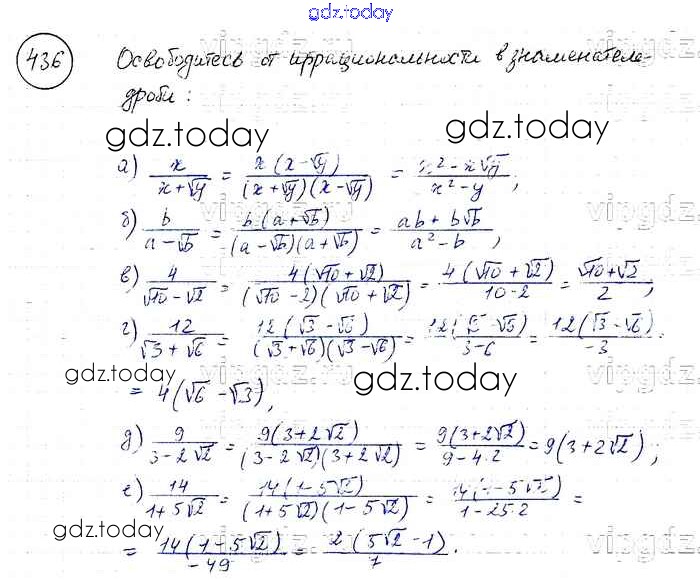 gdz.today
436 Освободитесь от иррациональности в знаменателе
дроби:
gdz.today gdz.today
а) x/(x+√y) = x(x-√y)/((x+√y)(x-√y)) = (x²-x√y)/(x²-y),
б) b/(a-√b) = b(a+√b)/((a-√b)(a+√b)) = (ab+b√b)/(a²-b),
в) 4/(√10-√2) = 4(√10+√2)/((√10-2)(√10+√2)) = 4(√10+√2)/(10-2) = (√10+√2)/2;
г) 12/(√3+√6) = 12(√3-√6)/((√3+√6)(√3-√6)) = 12(√3-√6)/(3-6) = 12(√3-√6)/(-3)
gdz.today gdz.today
= 4(√6-√3),
д) 9/(3-2√2) = 9(3+2√2)/((3-2√2)(3+2√2)) = 9(3+2√2)/(9-4·2) = 9(3+2√2);
е) 14/(1+5√2) = 14(1-5√2)/((1+5√2)(1-5√2)) = 14(1-5√2)/(1-25·2) =
= 14(1-5√2)/(-49) = 2(5√2-1)/7.